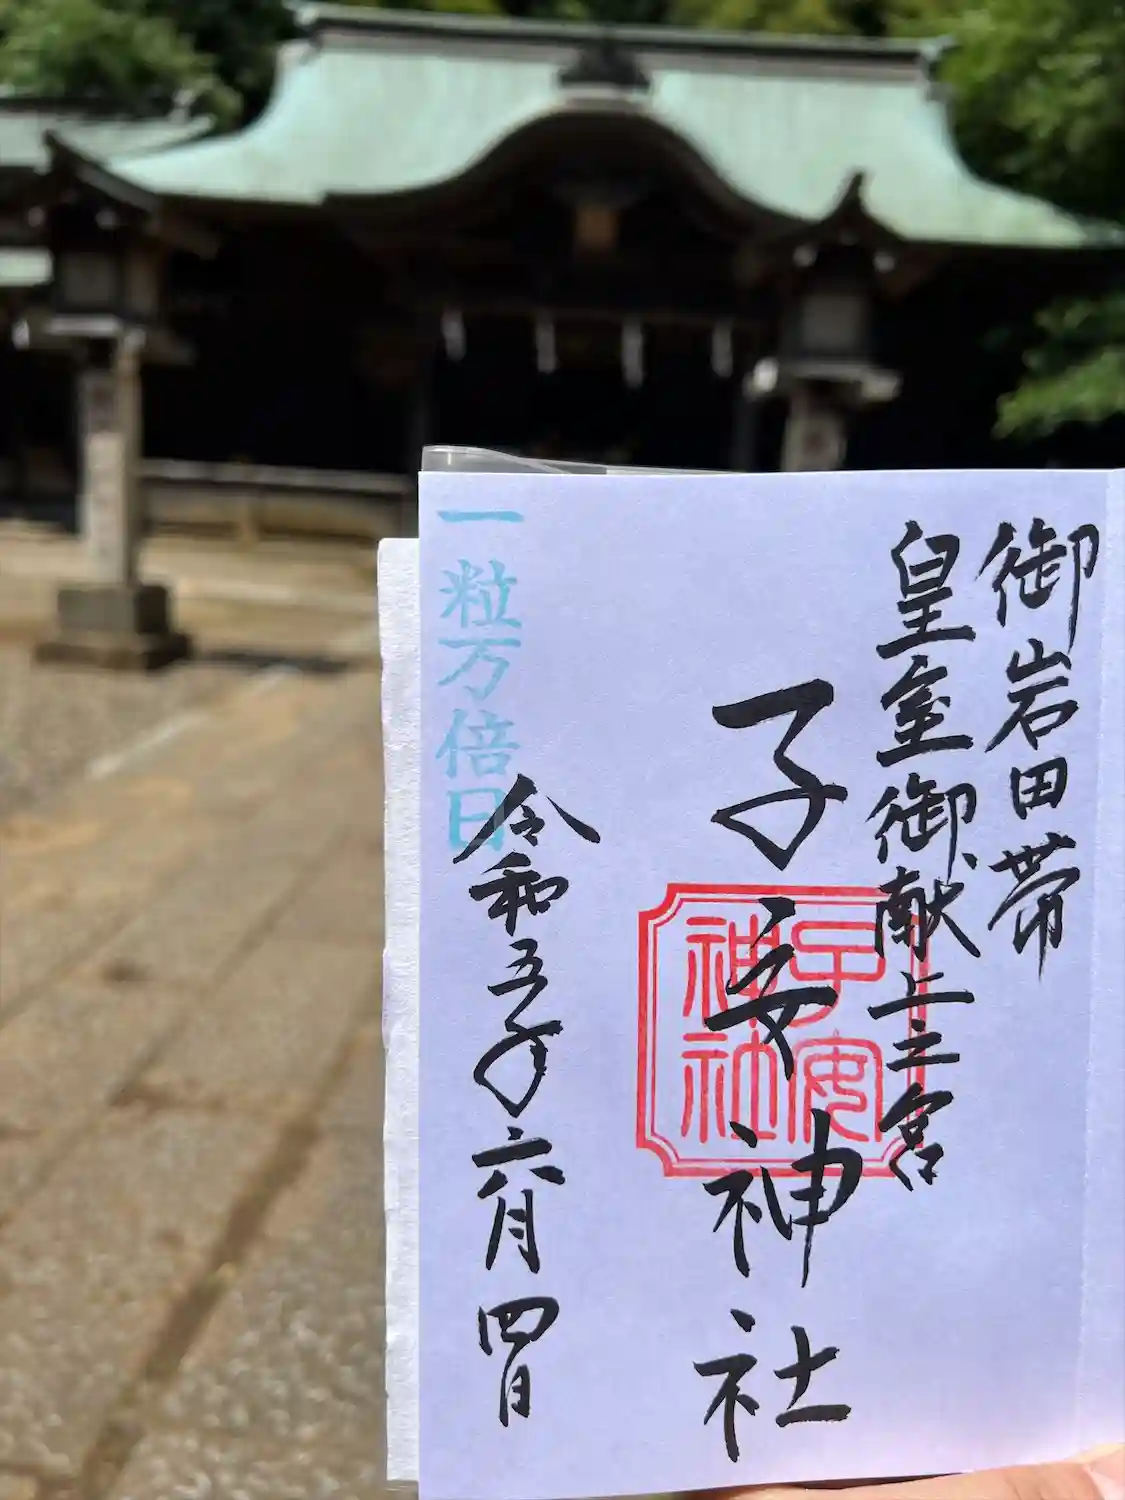 御岩田帯
皇室御献上之宮
子安神社
子安神社
令和五年六月四日
一粒万倍日